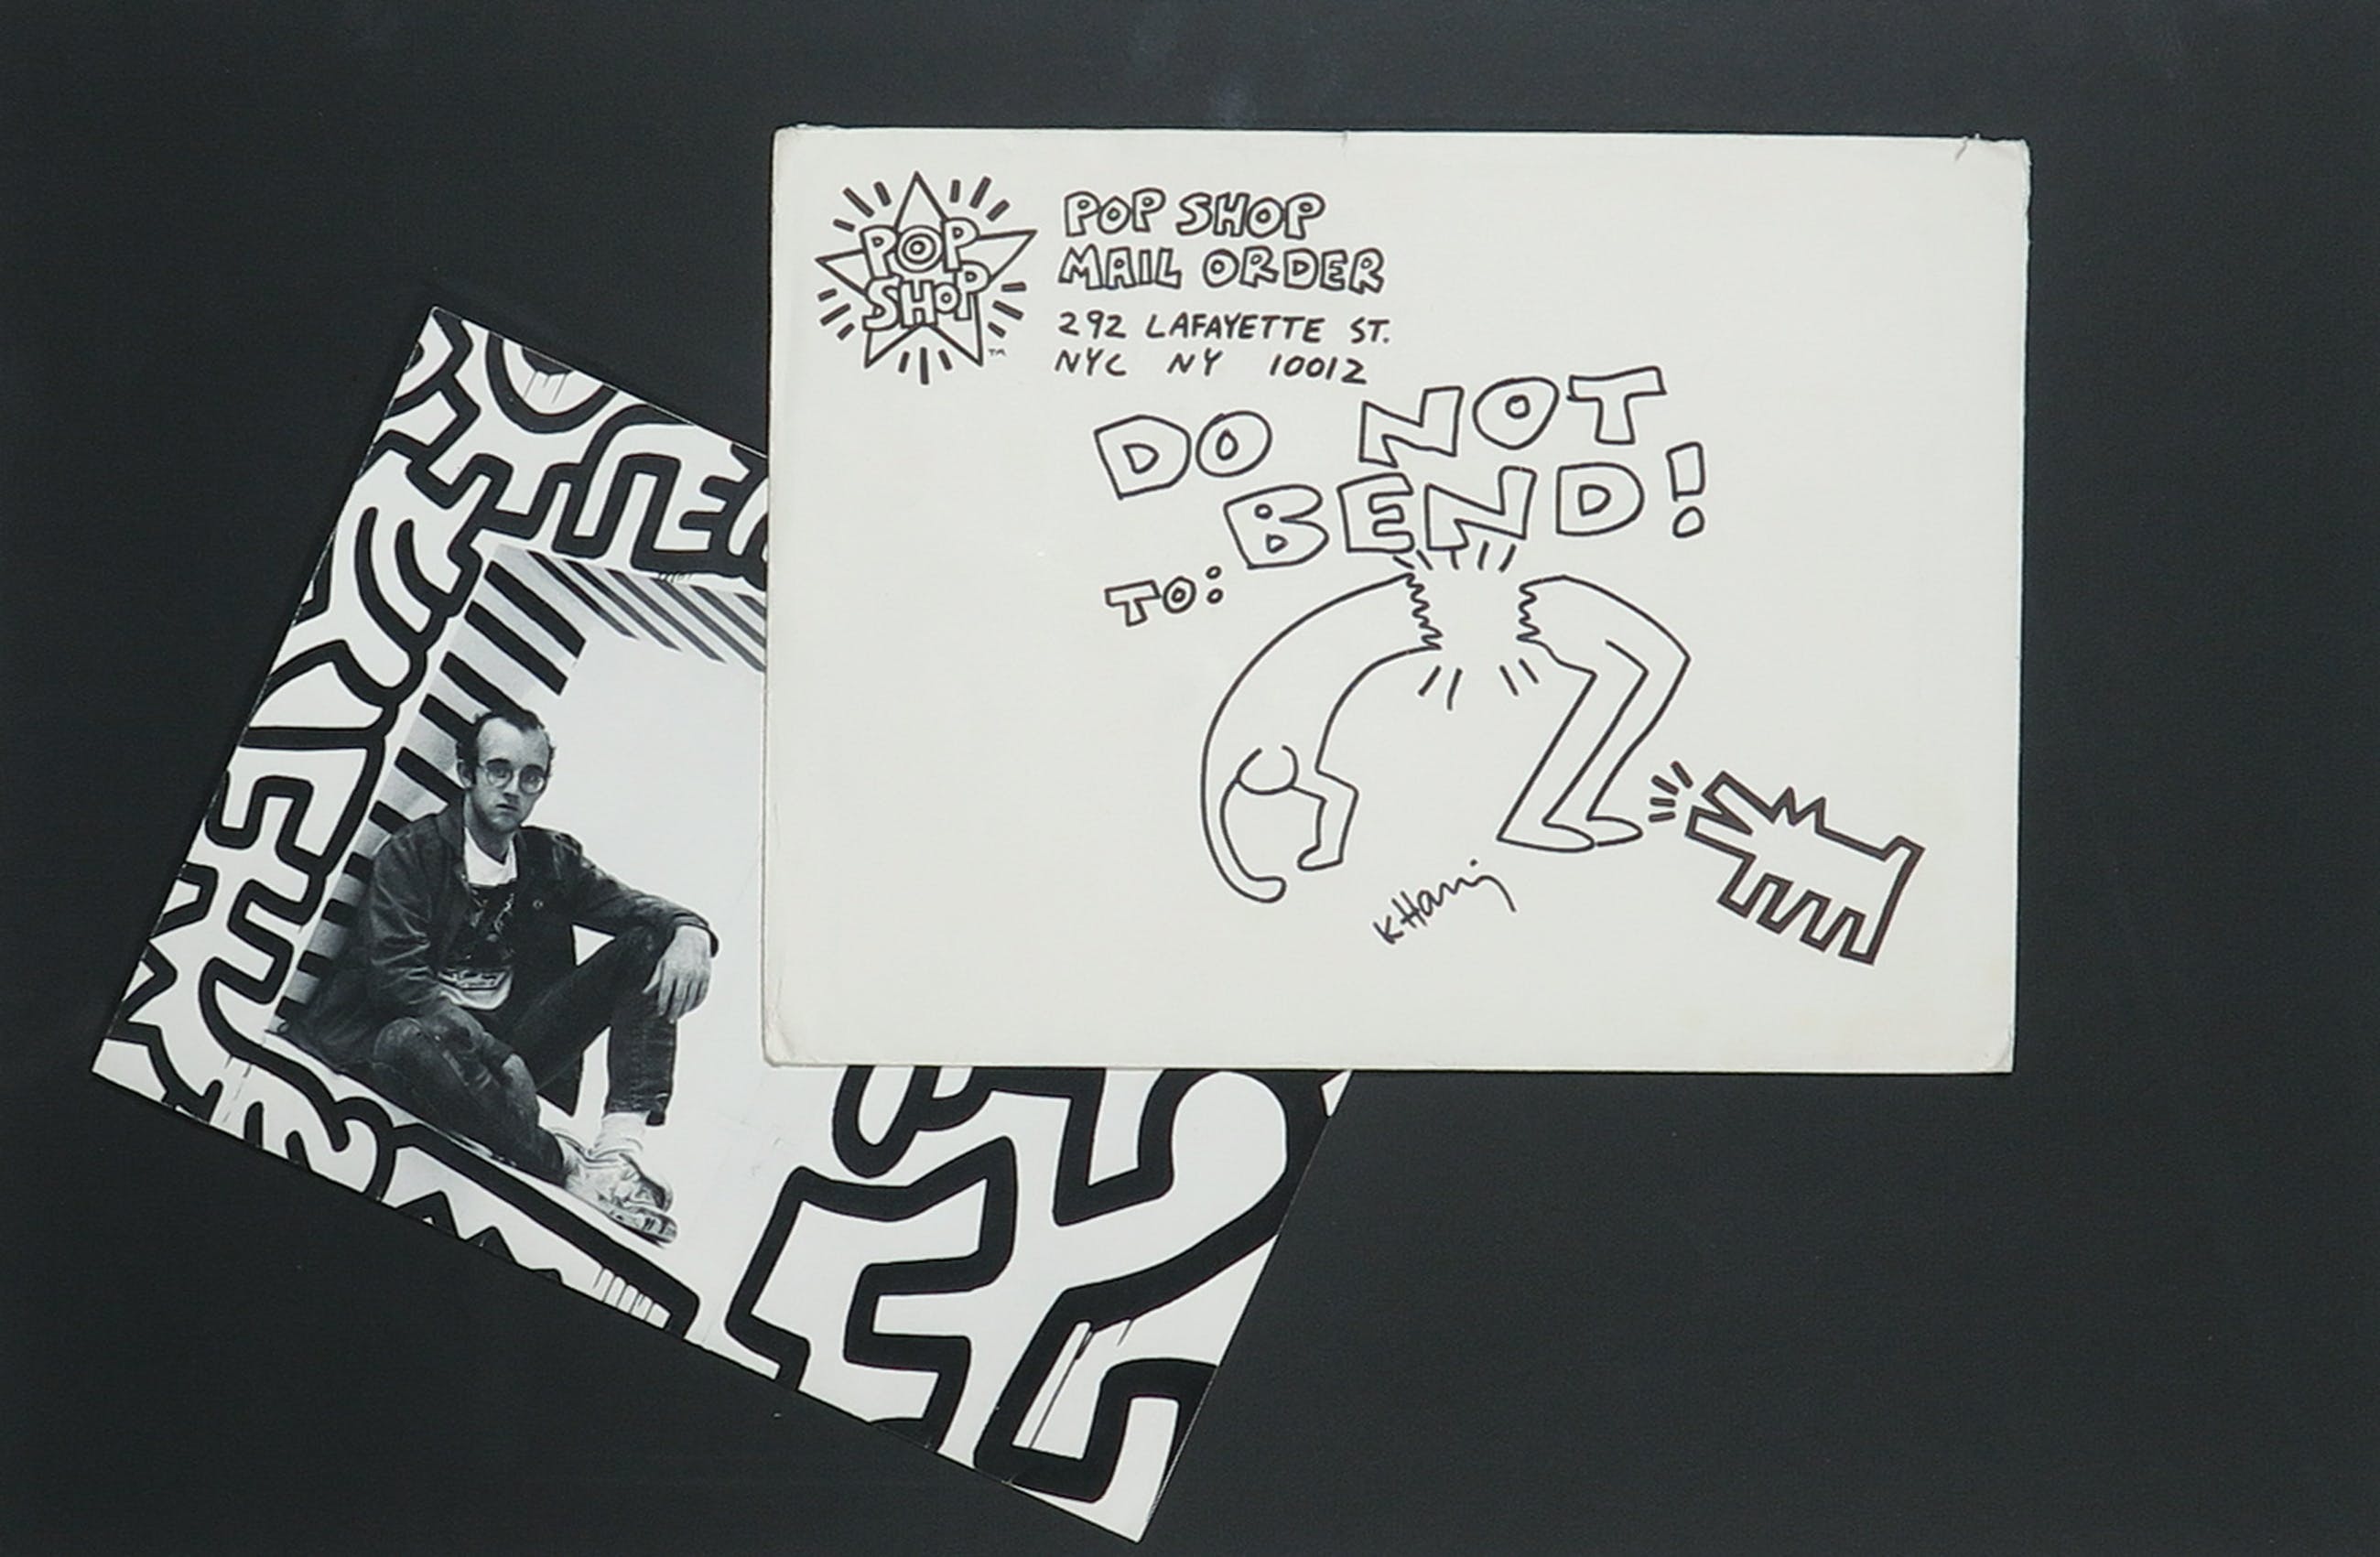 POP
SHOP
TM
POP SHOP
MAIL ORDER
292 LAFAYETTE ST.
NYC NY 10012
DO NOT
BEND!
TO:
K Haring